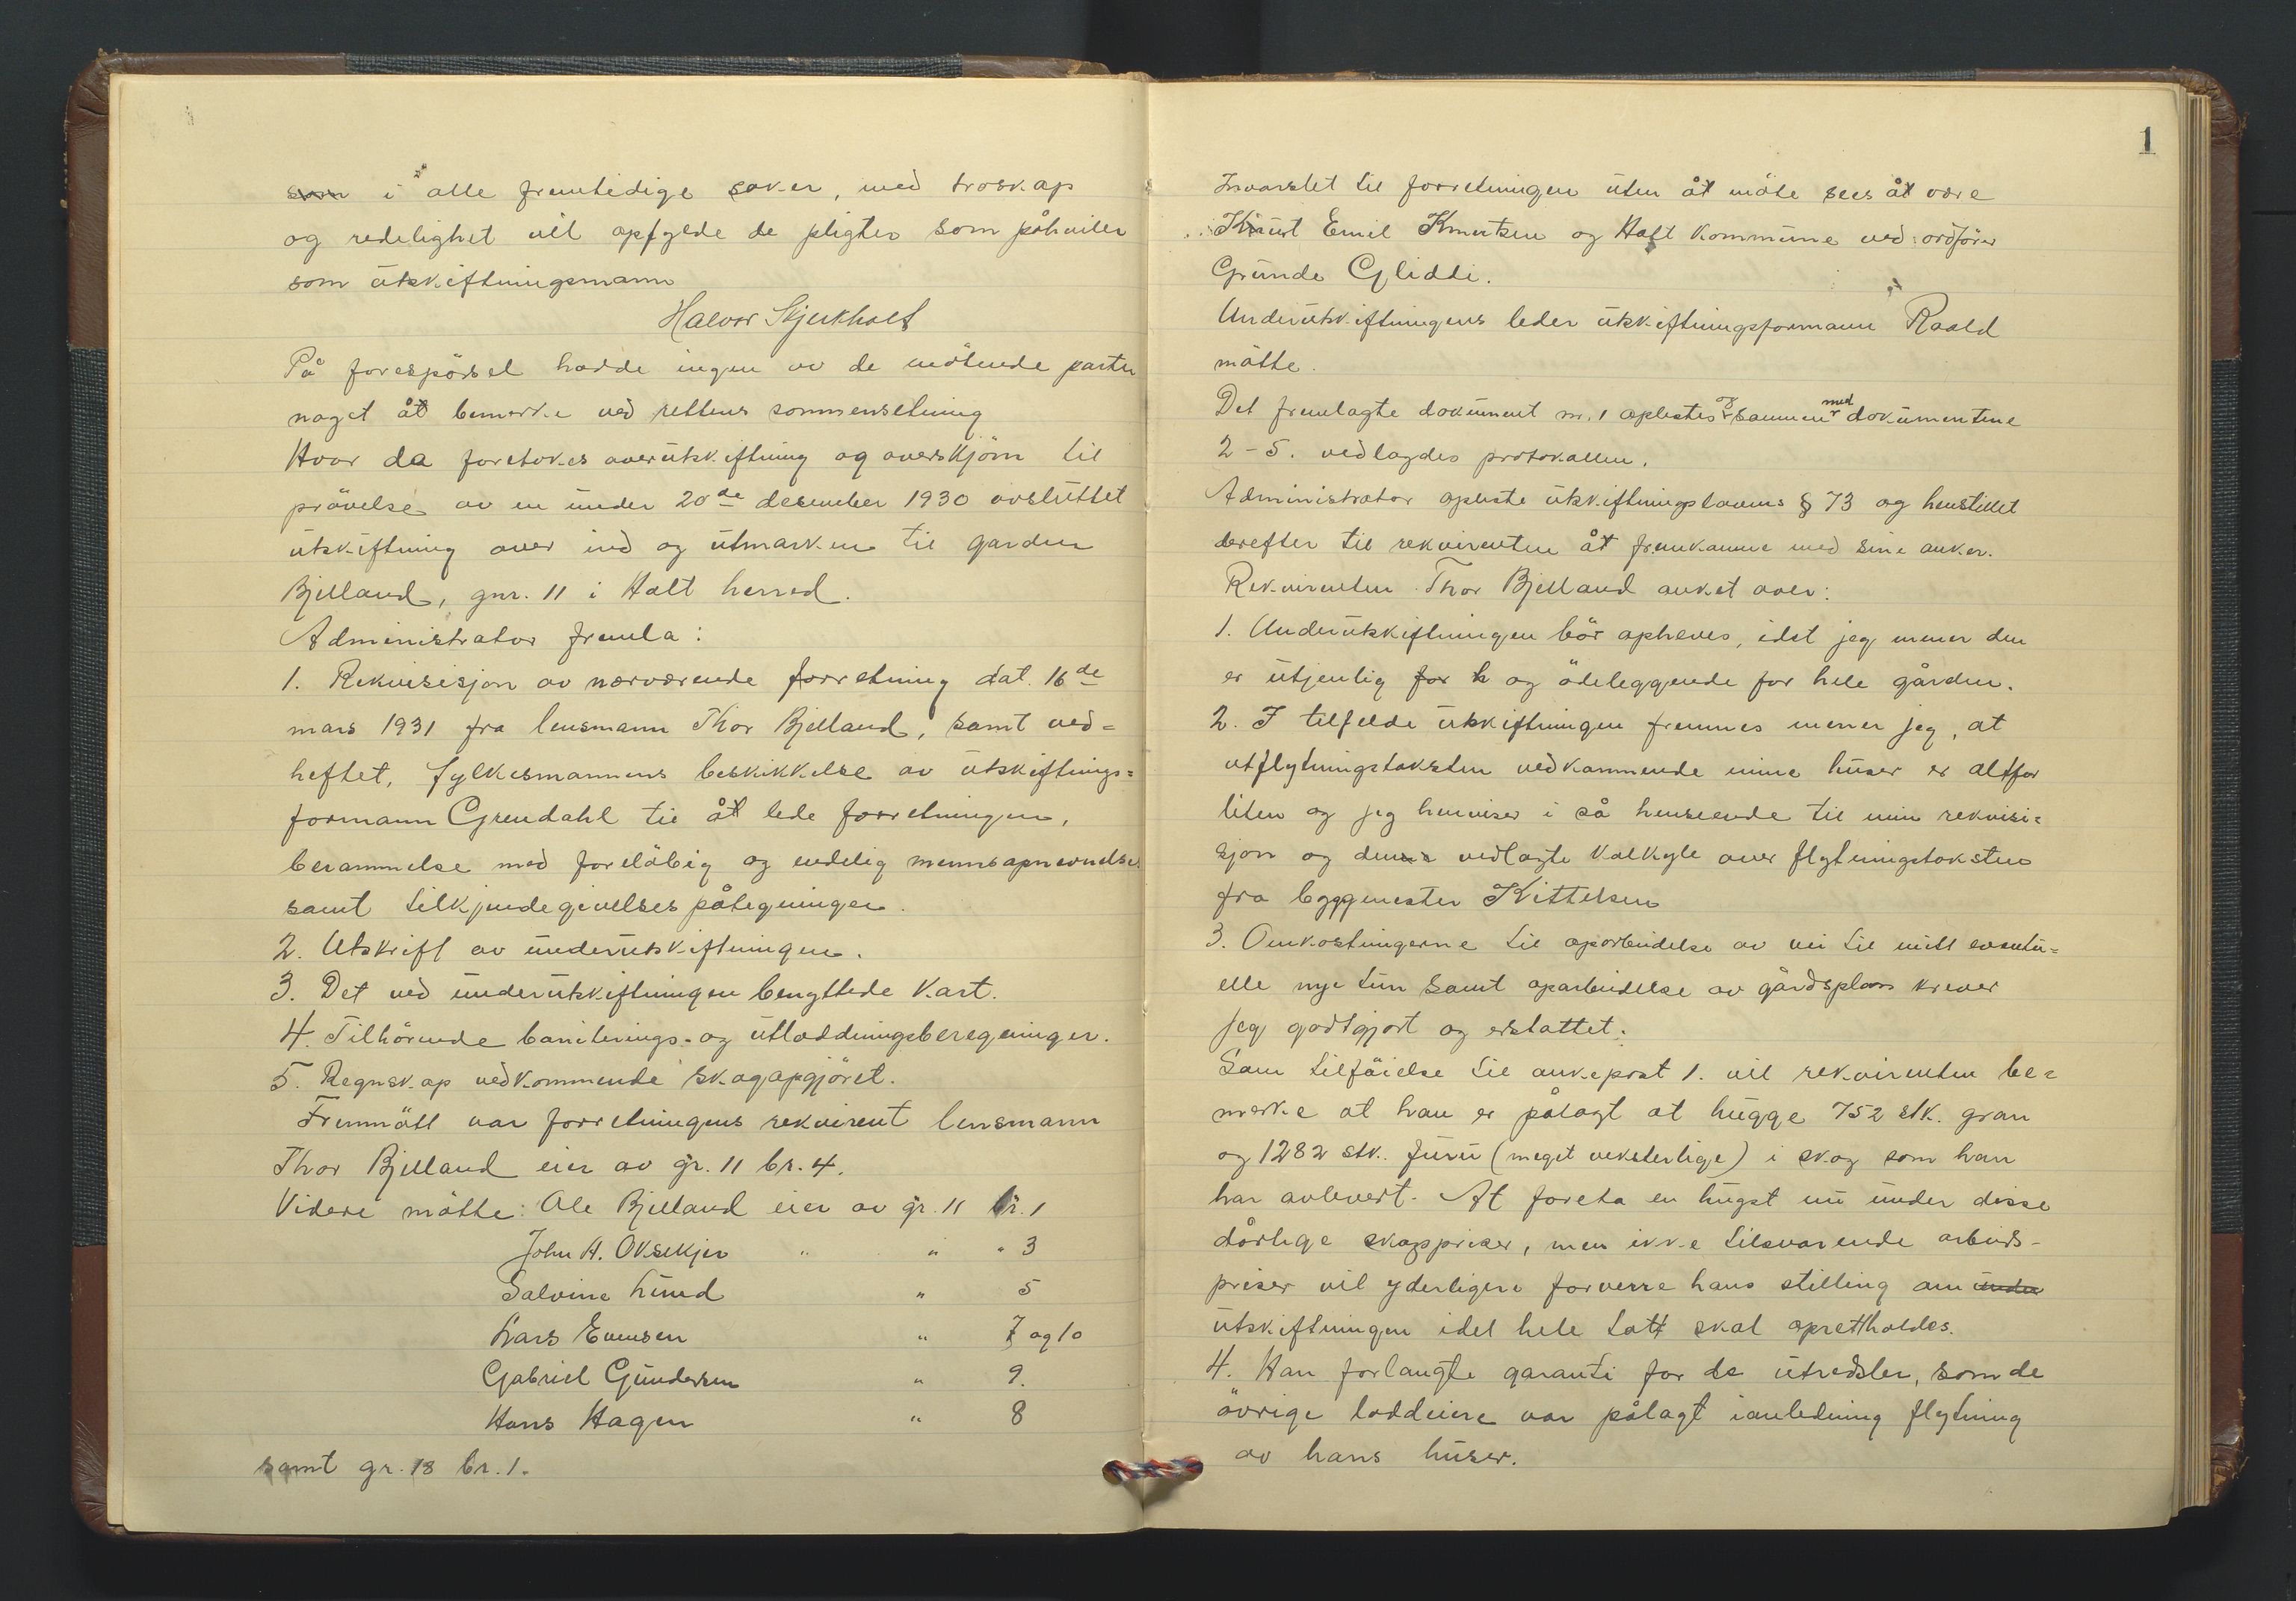 som i alle fremtidige saker, med troskap
og redelighet vil opfylde de pligter som påhviler
som utskiftningsmann
Halvor Skjerkholt
På forespörsel hadde ingen av de mötende parter
noget åt bemerke ved rettens sammensetning
Hvor da foretokes overutskiftning og overskjönn til
prövelse av en under 20de desember 1930 avsluttet
utskiftning over ind og utmarken til garden
Bjelland, gnr. 11 i Holt herred.
Administrator fremla:
1. Rekvisisjon av nærværende forretning dat. 16de
mars 1931 fra lensmann Thor Bjelland, samt ved=
heftet, fylkesmannens beskikkelse av utskiftnings=
formann Grendahl til åt lede forretningen,
berammelse med forelöbig og endelig mennsopnevnelse
samt tilkjendegivelsespåtegninger.
2. Utskrift av underutskiftningen.
3. Det ved underutskiftningen benyttede kart.
4. Tilhörende boniterings- og utloddningsberegninger.
5. Regnskap vedkommende skogopgjöret.
Fremmött var forretningens rekvirent lensmann
Thor Bjelland eier av gr. 11 br. 4.
Videre mötte: Ole Bjelland eier av gr. 11 br. 1
John A. Oksekjer " " " 3
Salvine Lund " 5
Lars Evensen " 7 og 10
Gabriel Gundersen " 9.
Hans Hagen " 8
samt gr. 18 br. 1.
1
Invarslet til forretningen uten åt möte sees åt være
Knut Emil Knutsen og Holt kommune ved ordförer
Gunde Gliddi.
Underutskiftningens leder utskiftningsformann Roald
mötte.
Det fremlagte dokument nr. 1 oplestes og sammen med dokumentene
2-5. vedlagdes protokollen.
Administrator opleste utskiftningslovens § 73 og henstillet
derefter til rekvirenten åt fremkomme med sine anker.
Rekvirenten Thor Bjelland anket over:
1. Underutskiftningen bör opheves, idet jeg mener den
er utjenlig for h og ödeleggende for hele gården.
2. I tilfelde utskiftningen fremmes mener jeg, at
utflytningstaksten vedkommende mine huser er altfor
liten og jeg henviser i så henseende til min rekvisi=
sjon og denne vedlagte kalkyle over flytningstaksten
fra byggmester Kittelsen
3. Omkostningerne til oparbeidelse av vei til mitt eventu=
elle nye tun samt oparbeidelse av gårdsplass krever
jeg godtgjort og erstattet.
Som tilföielse til ankepost 1. vil rekvirenten be=
merke at han er pålagt at hugge 752 stk. gran
og 1282 stk. furu (meget veksterlige) i skog som han
har avlevert. At foreta en hugst nu under disse
dårlige skogpriser, men ikke tilsvarende arbeids-
priser vil yderligere forverre hans stilling om under
utskiftningen idet hele tatt skal oprettholdes.
4. Han forlangte garanti for de utredsler, som de
övrige loddeiere var pålagt i anledning flytning
av hans huser.